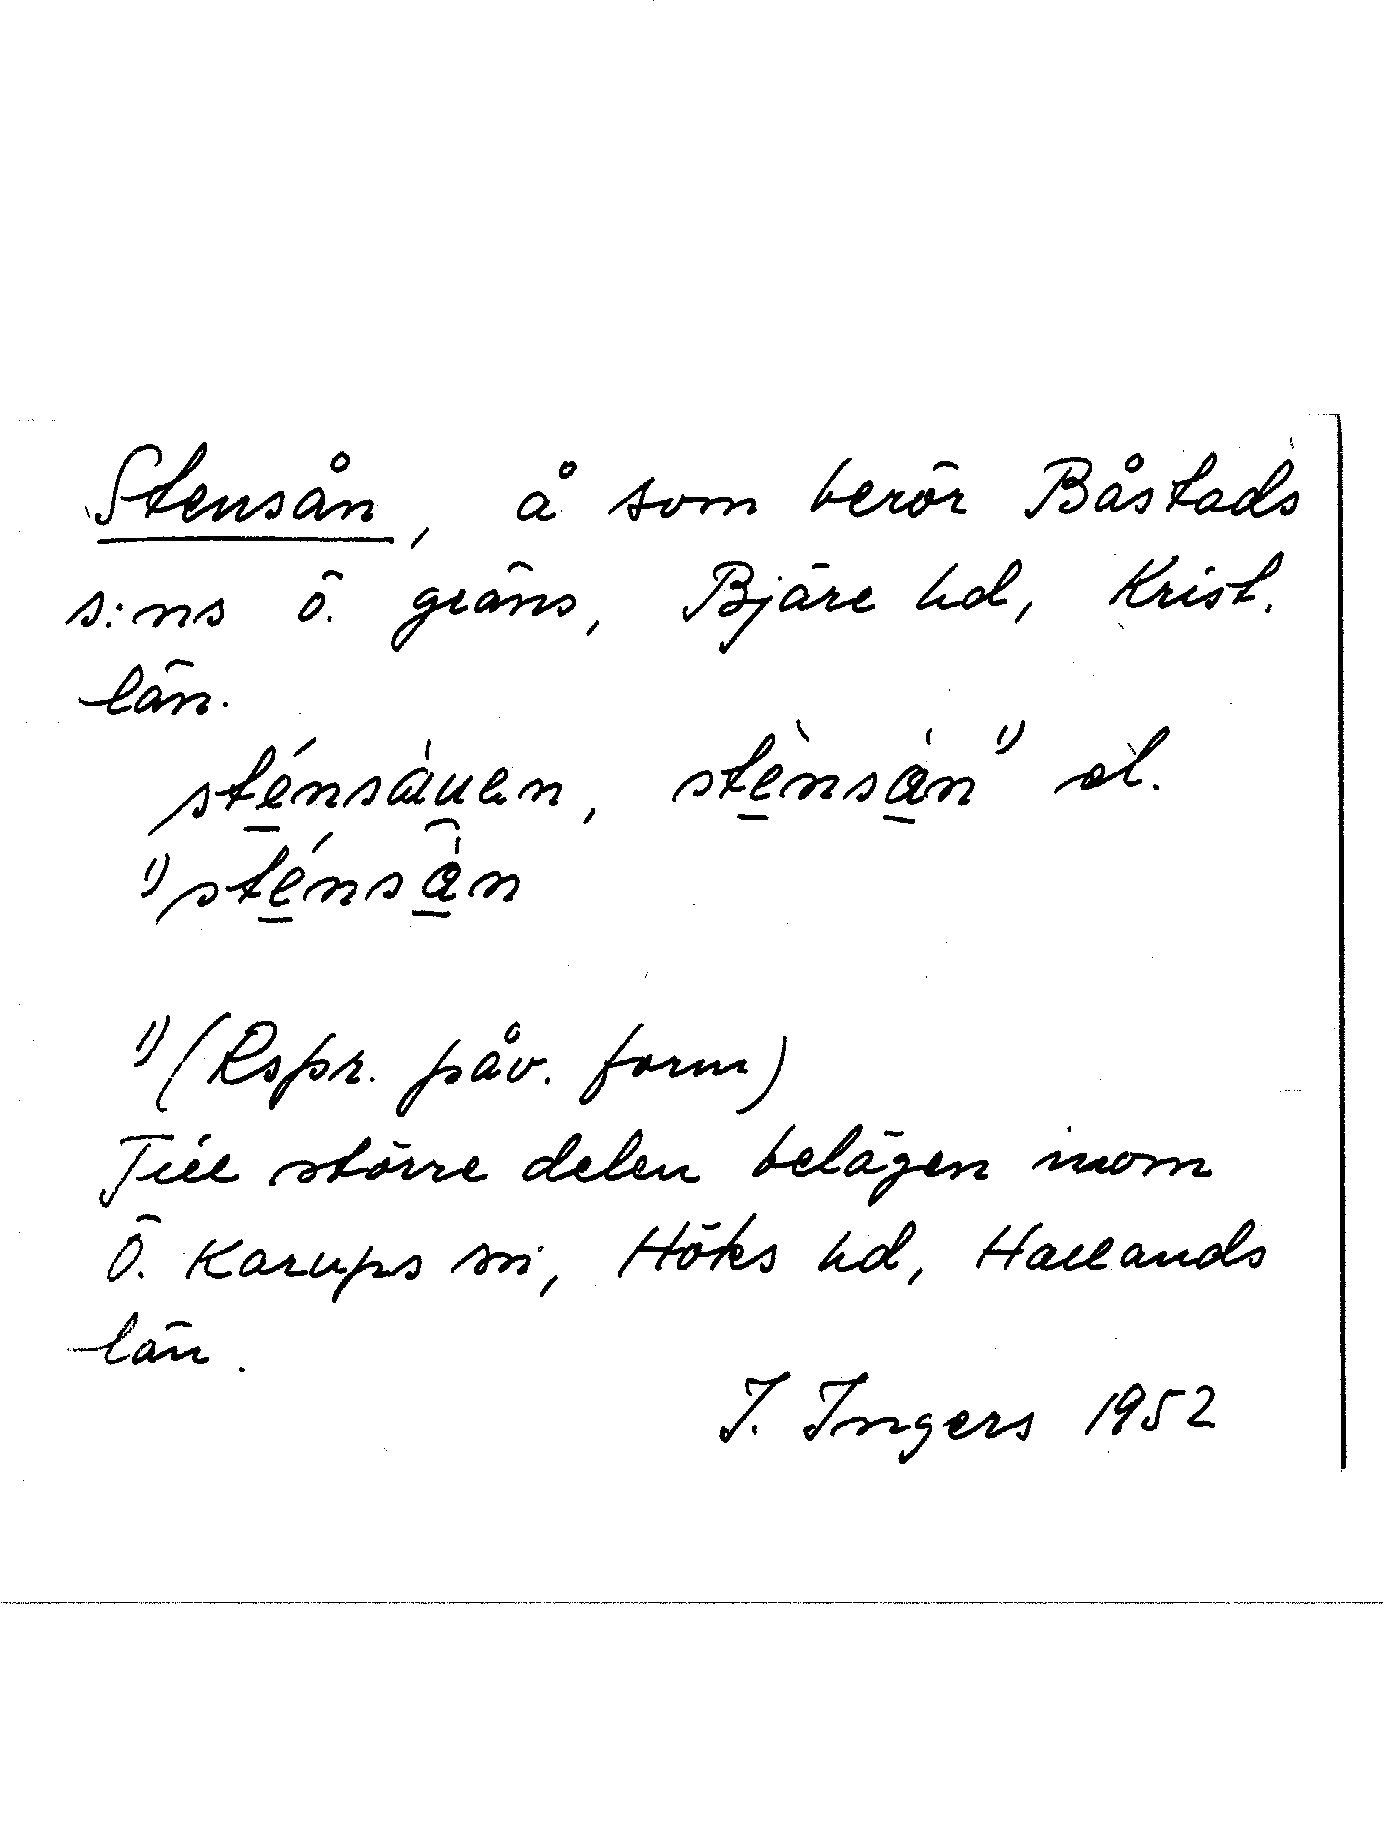 Stensån, å som berör Båstads
s:ns ö. gräns, Bjäre hd, Krist.
län.
sténsàuen, stènsàn ¹⁾ el.
¹⁾ sténsàn
¹⁾ (Rspr. påv. form)
Till större delen belägen inom
Ö. Karups sn, Höks hd, Hallands
län.
I. Ingers 1952